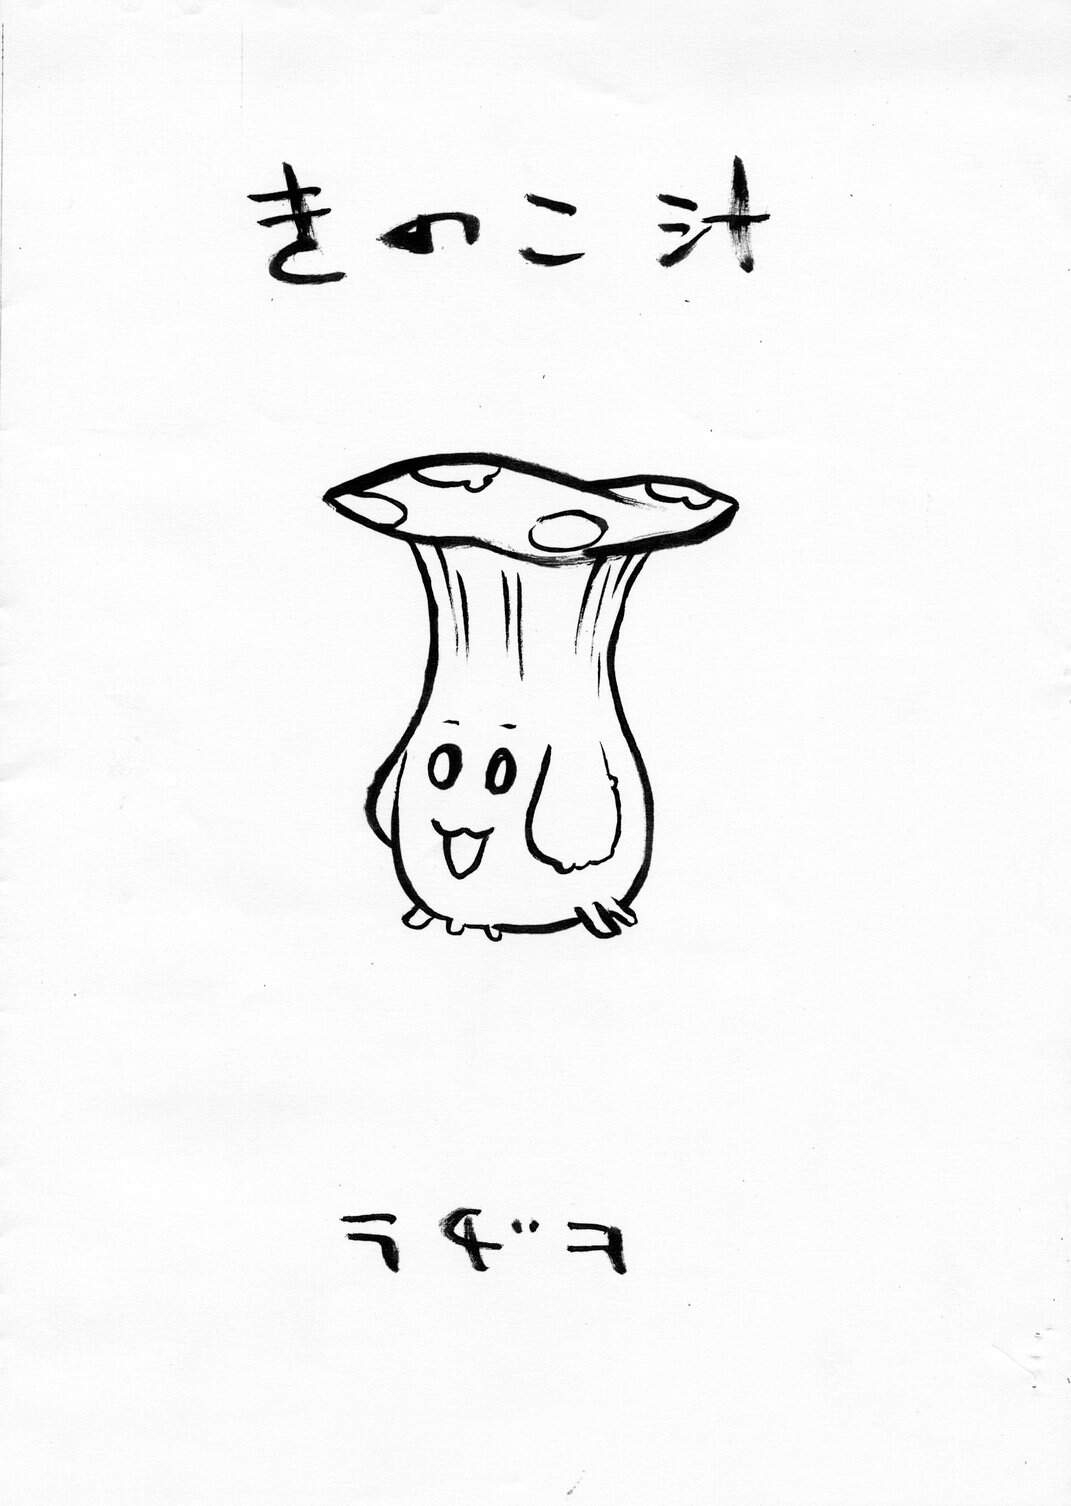 きのこ汁
ラヂヲ